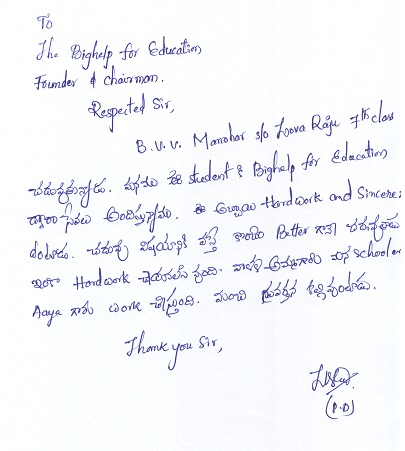 To
The Bighelp for Education
Founder & chairman.
Respected Sir,
B.V.V. Manohar s/o Lova Raju 7th class
చదువుతున్నాడు. మనము ఈ student కి Bighelp for Education
ద్వారా సేవలు అందిస్తున్నాము. ఈ అబ్బాయి Hardwork and Sincere
ఉంటాడు. చదువు విషయానికి వస్తే కొంచెం Better గానే చదువుతాడు
ఇంకా Hardwork చేయవలసి వుంది. వాళ్ళ అమ్మగారు మన school
Aaya గారు work చేస్తుంది. మంచి ప్రవర్తన కల్గివుంటాడు.
Thank you Sir,
(P.D)